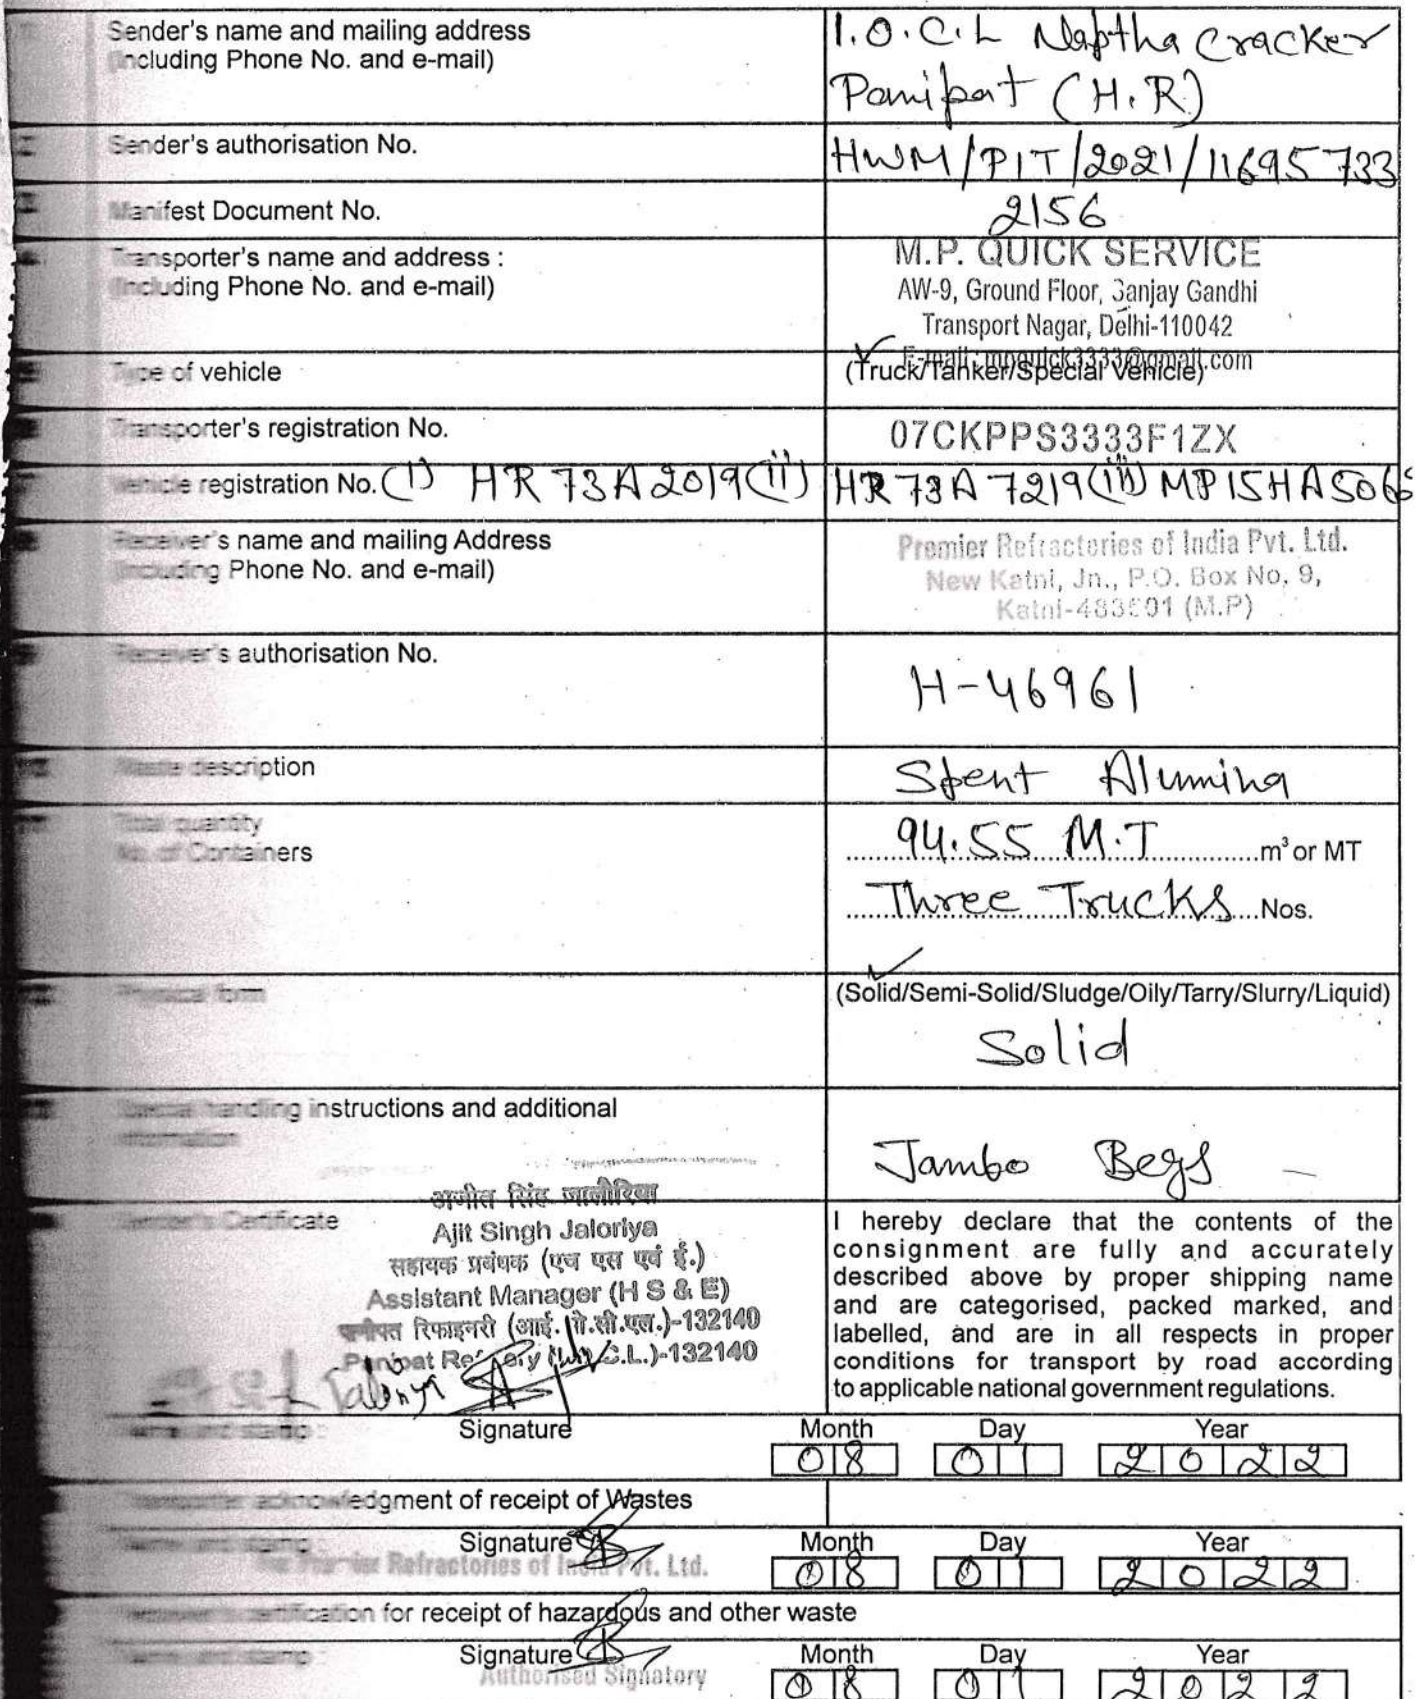 Sender's name and mailing address
(Including Phone No. and e-mail)
I.O.C.L Naptha Cracker
Panipat (H.R)
Sender's authorisation No.
HWM/PIT/2021/11695733
Manifest Document No.
2156
Transporter's name and address :
(Including Phone No. and e-mail)
M.P. QUICK SERVICE
AW-9, Ground Floor, Sanjay Gandhi
Transport Nagar, Delhi-110042
E-mail: mpquick3333@gmail.com
Type of vehicle
(Truck/Tanker/Special Vehicle)
Transporter's registration No.
07CKPPS3333F1ZX
Vehicle registration No. (i) HR 73A 2019 (ii) HR 73A 7219 (iii) MP15HA5066
Receiver's name and mailing Address
(Including Phone No. and e-mail)
Premier Refractories of India Pvt. Ltd.
New Katni, Jn., P.O. Box No. 9,
Katni-483501 (M.P)
Receiver's authorisation No.
H-46961
Waste description
Spent Alumina
Total quantity
No. of Containers
94.55 M.T m³ or MT
Three Trucks Nos.
Physical form
(Solid/Semi-Solid/Sludge/Oily/Tarry/Slurry/Liquid)
Solid
Special handling instructions and additional
information
Jambo Begs
Sender's Certificate
अजीत सिंह जालौरिया
Ajit Singh Jaloriya
सहायक प्रबंधक (एच एस एवं ई.)
Assistant Manager (H S & E)
पानीपत रिफाइनरी (आई.ओ.सी.एल.)-132140
Panipat Refinery (I.O.C.L.)-132140
I hereby declare that the contents of the
consignment are fully and accurately
described above by proper shipping name
and are categorised, packed marked, and
labelled, and are in all respects in proper
conditions for transport by road according
to applicable national government regulations.
Name and stamp : Signature Month Day Year
08 01 2022
Transporter acknowledgment of receipt of Wastes
Name and stamp : Signature Month Day Year
For Premier Refractories of India Pvt. Ltd.
08 01 2022
Receiver's certification for receipt of hazardous and other waste
Name and stamp : Signature Month Day Year
Authorised Signatory
08 01 2022